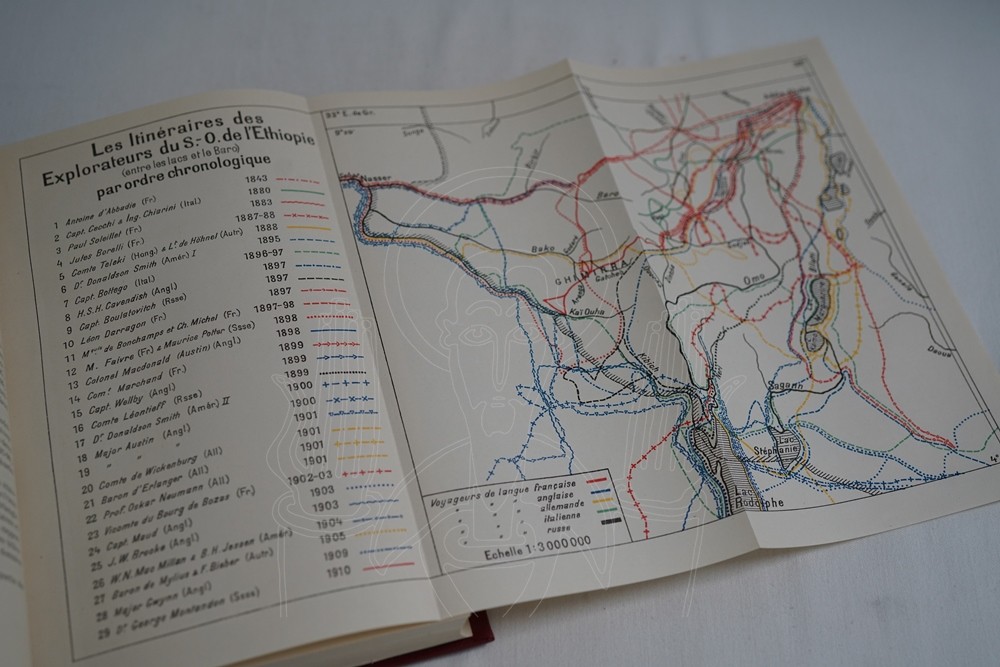 Les Itinéraires des
Explorateurs du S.-O. de l'Ethiopie
(entre les lacs et le Baro)
par ordre chronologique
1 Antoine d'Abbadie (Fr) 1843
2 Capt. Cecchi & Ing. Chiarini (Ital) 1880
3 Paul Soleillet (Fr) 1883
4 Jules Borelli (Fr.) 1887-88
5 Comte Teleki (Hong.) & Lt. de Höhnel (Autr) 1888
6 Dr. Donaldson Smith (Amér.) I 1895
7 Capt. Bottego (Ital) 1896-97
8 H.S.H. Cavendish (Angl) 1897
9 Capt. Boulatovitch (Rsse) 1897
10 Léon Darragon (Fr) 1897
11 Mquis de Bonchamps et Ch. Michel (Fr) 1897-98
12 M. Faivre (Fr) & Maurice Potter (Ssse) 1898
13 Colonel Macdonald (Austin) (Angl.) 1898
14 Comt Marchand (Fr.) 1899
15 Capt. Wellby (Angl) 1899
16 Comte Léontieff (Rsse) 1899
17 Dr. Donaldson Smith (Amér) II 1900
18 Major Austin (Angl) 1900
19 " " " 1901
20 Comte de Wickenburg (All) 1901
21 Baron d'Erlanger (All) 1901
22 Prof. Oskar Neumann (All) 1901
23 Vicomte du Bourg de Bozas (Fr) 1902-03
24 Capt. Maud (Angl) 1903
25 J.W. Brooke (Angl) 1903
26 W.N. Mac Millan & B.H. Jessen (Amér) 1904
27 Baron de Mylius & F. Bieber (Autr) 1905
28 Major Gwynn (Angl) 1909
29 Dr. George Montandon (Ssse) 1910
33° E. de Gr.
Nasser
Baro
Bako
GHIMIRRA
Kaï Ouha
Omo
Kibich
Saganh
Daoua
Lac
Stéphanie
Lac
Rodolphe
4°
Voyageurs de langue française
" " " anglaise
" " " allemande
" " " italienne
" " " russe
Echelle 1:3 000 000